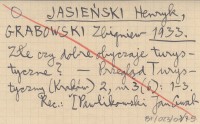 JASIEŃSKI Henryk,
GRABOWSKI Zbigniew 1933.
Złe czy dobre obyczaje turys-
tyczne? Przegląd Turys-
tyczny (Kraków) 2, nr 3(6): 1-3.
Rec.: J. Pawlikowski